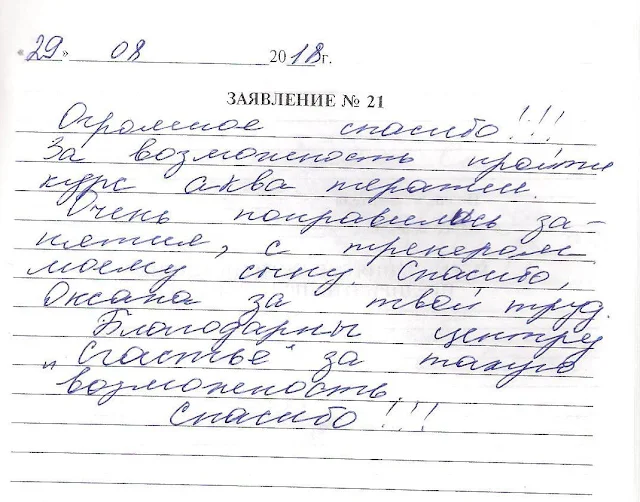 «29» 08 2018г.
ЗАЯВЛЕНИЕ № 21
Огромное спасибо!!!
За возможность пройти
курс аква терапии.
Очень понравились за-
нятия, с тренером
моему сыну. Спасибо,
Оксана за твой труд.
Благодарны центру
"Счастье" за такую
возможность.
Спасибо!!!